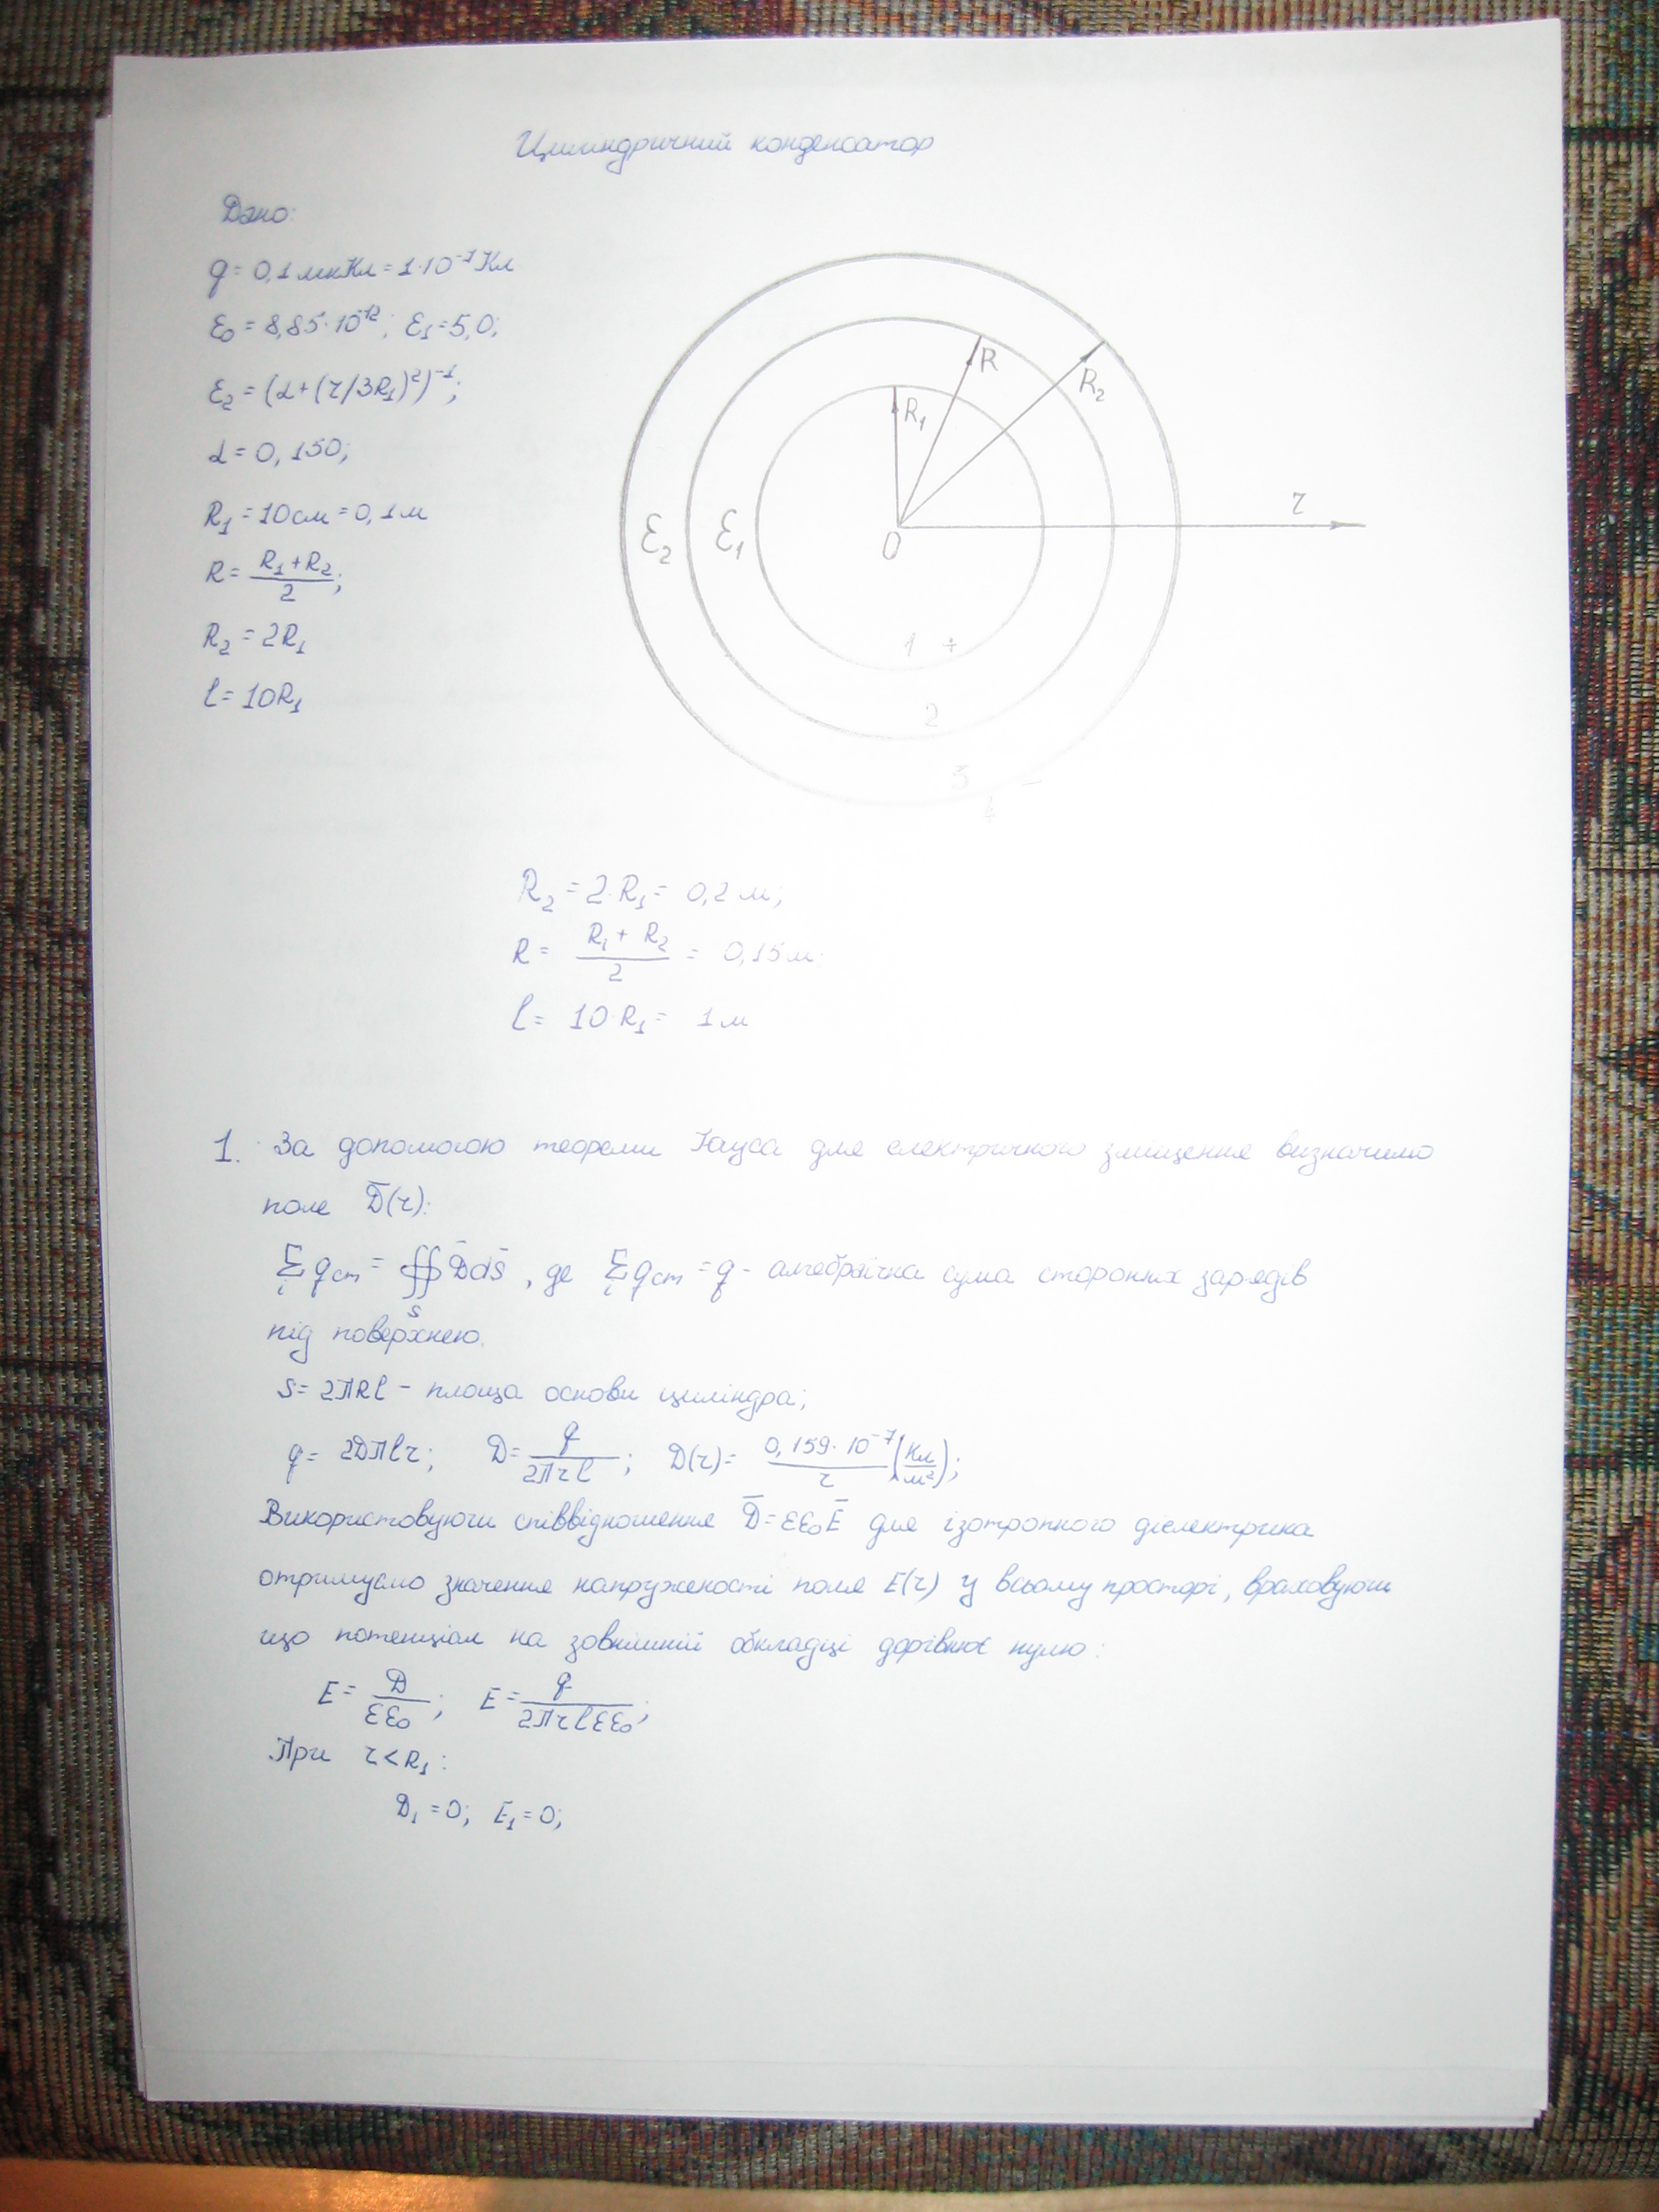 Циліндричний конденсатор
Дано:
q = 0,1 мкКл = 1·10⁻⁷ Кл
ε₀ = 8,85·10⁻¹²; ε₁ = 5,0;
ε₂ = (α+(r/3R₁)²)⁻¹;
α = 0,150;
R₁ = 10 см = 0,1 м
R = (R₁+R₂)/2;
R₂ = 2R₁
l = 10R₁
R
R₂
R₁
r
ε₂ ε₁ O
1 +
2
3 −
4
R₂ = 2·R₁ = 0,2 м;
R = (R₁ + R₂)/2 = 0,15 м
l = 10·R₁ = 1 м
1. За допомогою теореми Гауса для електричного зміщення визначимо
поле D̄(r):
∑ᵢ qст = ∯ₛ D̄ds̄, де ∑ᵢ qст = q - алгебраїчна сума сторонніх зарядів
під поверхнею.
S = 2πRl - площа основи циліндра;
q = 2Dπlr; D = q/(2πrl); D(r) = (0,159·10⁻⁷)/r (Кл/м²);
Використовуючи співвідношення D̄ = εε₀Ē для ізотропного діелектрика
отримуємо значення напруженості поля E(r) у всьому просторі, враховуючи
що потенціал на зовнішній обкладці дорівнює нулю:
E = D/(εε₀); E = q/(2πrlεε₀);
При r < R₁:
D₁ = 0; E₁ = 0;